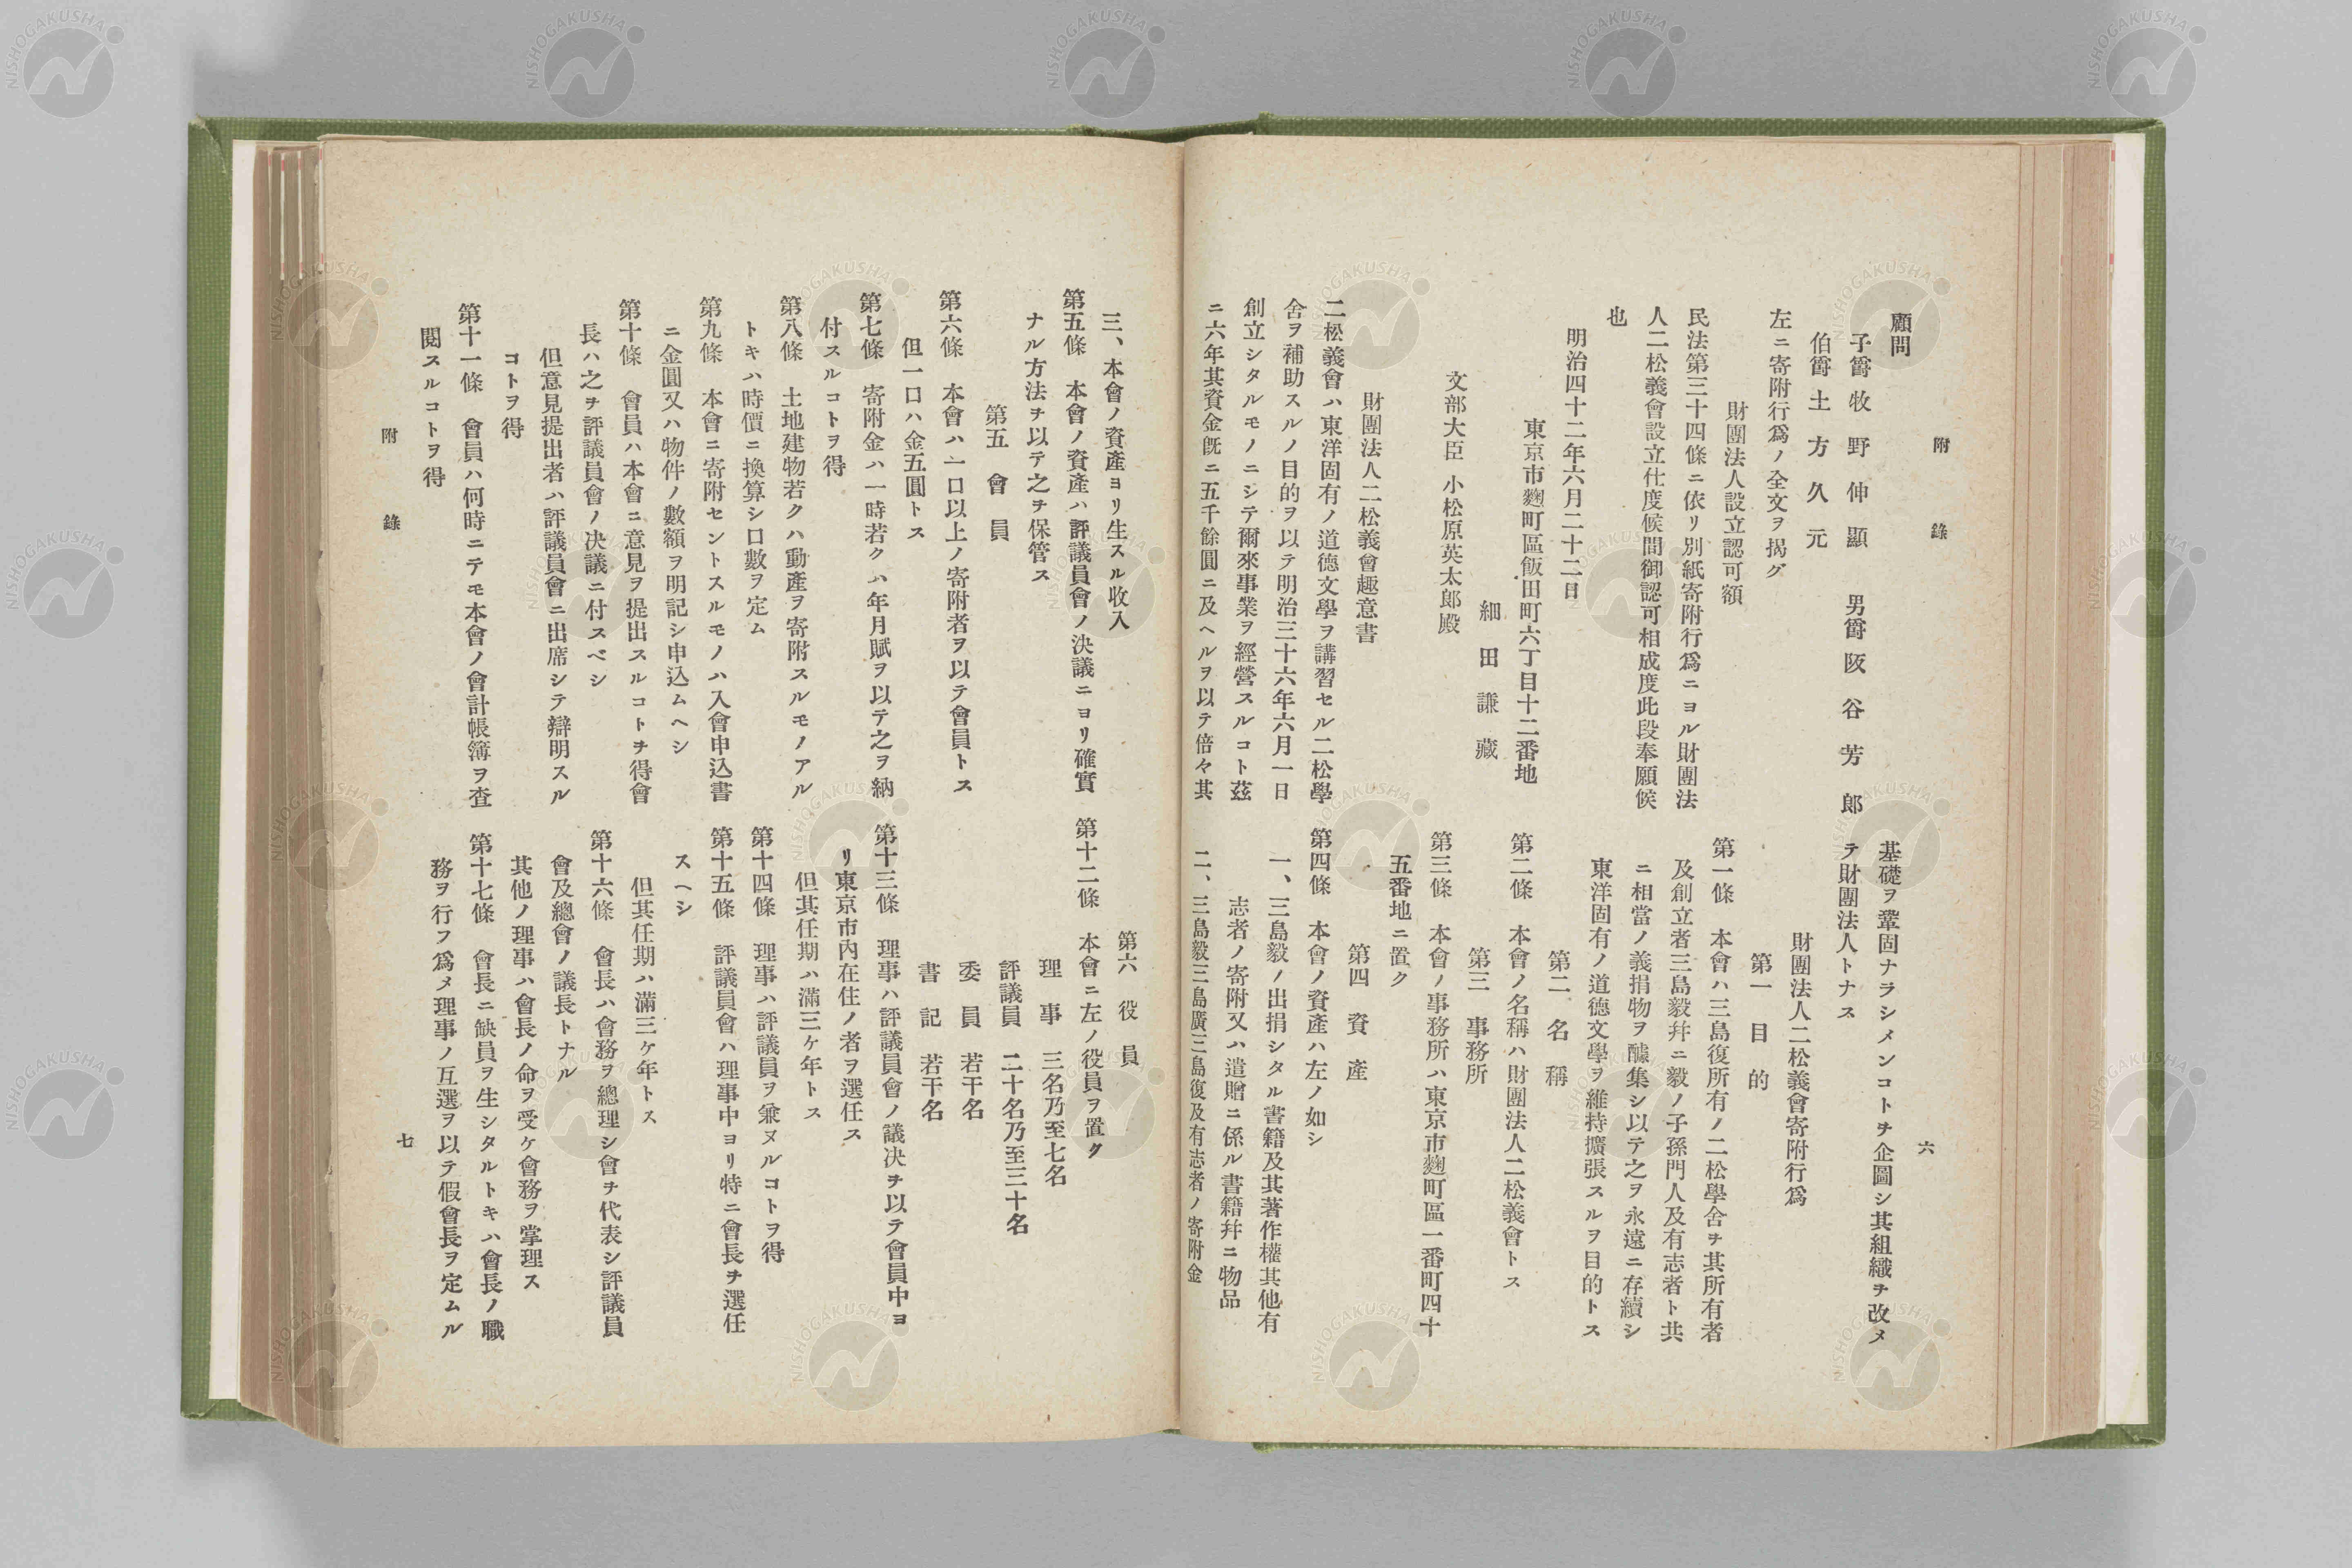 附錄
六
顧問
子爵 牧野伸顯 男爵 阪谷芳郎
伯爵 土方久元
左ニ寄附行爲ノ全文ヲ揭グ
財團法人設立認可願
民法第三十四條ニ依リ別紙寄附行爲ニヨル財團法
人二松義會設立仕度候間御認可相成度此段奉願候
也
明治四十二年六月二十二日
東京市麴町區飯田町六丁目十二番地
細田謙藏
文部大臣 小松原英太郎殿
財團法人二松義會趣意書
二松義會ハ東洋固有ノ道德文學ヲ講習セル二松學
舍ヲ補助スルノ目的ヲ以テ明治三十六年六月一日
創立シタルモノニシテ爾來事業ヲ經營スルコト茲
ニ六年其資金既ニ五千餘圓ニ及ヘルヲ以テ倍々其
基礎ヲ鞏固ナラシメンコトヲ企圖シ其組織ヲ改メ
テ財團法人トナス
財團法人二松義會寄附行爲
第一 目的
第一條 本會ハ三島復所有ノ二松學舍ヲ其所有者
及創立者三島毅幷ニ毅ノ子孫門人及有志者ト共
ニ相當ノ義捐物ヲ醵集シ以テ之ヲ永遠ニ存續シ
東洋固有ノ道德文學ヲ維持擴張スルヲ目的トス
第二 名稱
第二條 本會ノ名稱ハ財團法人二松義會トス
第三 事務所
第三條 本會ノ事務所ハ東京市麴町區一番町四十
五番地ニ置ク
第四 資產
第四條 本會ノ資產ハ左ノ如シ
一、三島毅ノ出捐シタル書籍及其著作權其他有
志者ノ寄附又ハ遺贈ニ係ル書籍幷ニ物品
二、三島毅三島廣三島復及有志者ノ寄附金
三、本會ノ資產ヨリ生スル收入
第五條 本會ノ資產ハ評議員會ノ決議ニヨリ確實
ナル方法ヲ以テ之ヲ保管ス
第五 會員
第六條 本會ハ一口以上ノ寄附者ヲ以テ會員トス
但一口ハ金五圓トス
第七條 寄附金ハ一時若クハ年月賦ヲ以テ之ヲ納
付スルコトヲ得
第八條 土地建物若クハ動產ヲ寄附スルモノアル
トキハ時價ニ換算シ口數ヲ定ム
第九條 本會ニ寄附セントスルモノハ入會申込書
ニ金圓又ハ物件ノ數額ヲ明記シ申込ムヘシ
第十條 會員ハ本會ニ意見ヲ提出スルコトヲ得會
長ハ之ヲ評議員會ノ決議ニ付スベシ
但意見提出者ハ評議員會ニ出席シテ辯明スル
コトヲ得
第十一條 會員ハ何時ニテモ本會ノ會計帳簿ヲ查
閱スルコトヲ得
第六 役員
第十二條 本會ニ左ノ役員ヲ置ク
理事 三名乃至七名
評議員 二十名乃至三十名
委員 若干名
書記 若干名
第十三條 理事ハ評議員會ノ議決ヲ以テ會員中ヨ
リ東京市內在住ノ者ヲ選任ス
但其任期ハ滿三ケ年トス
第十四條 理事ハ評議員ヲ兼ヌルコトヲ得
第十五條 評議員會ハ理事中ヨリ特ニ會長ヲ選任
スヘシ
但其任期ハ滿三ケ年トス
第十六條 會長ハ會務ヲ總理シ會ヲ代表シ評議員
會及總會ノ議長トナル
其他ノ理事ハ會長ノ命ヲ受ケ會務ヲ掌理ス
第十七條 會長ニ缺員ヲ生シタルトキハ會長ノ職
務ヲ行フ爲メ理事ノ互選ヲ以テ假會長ヲ定ムル
附錄
七
NISHOGAKUSHA